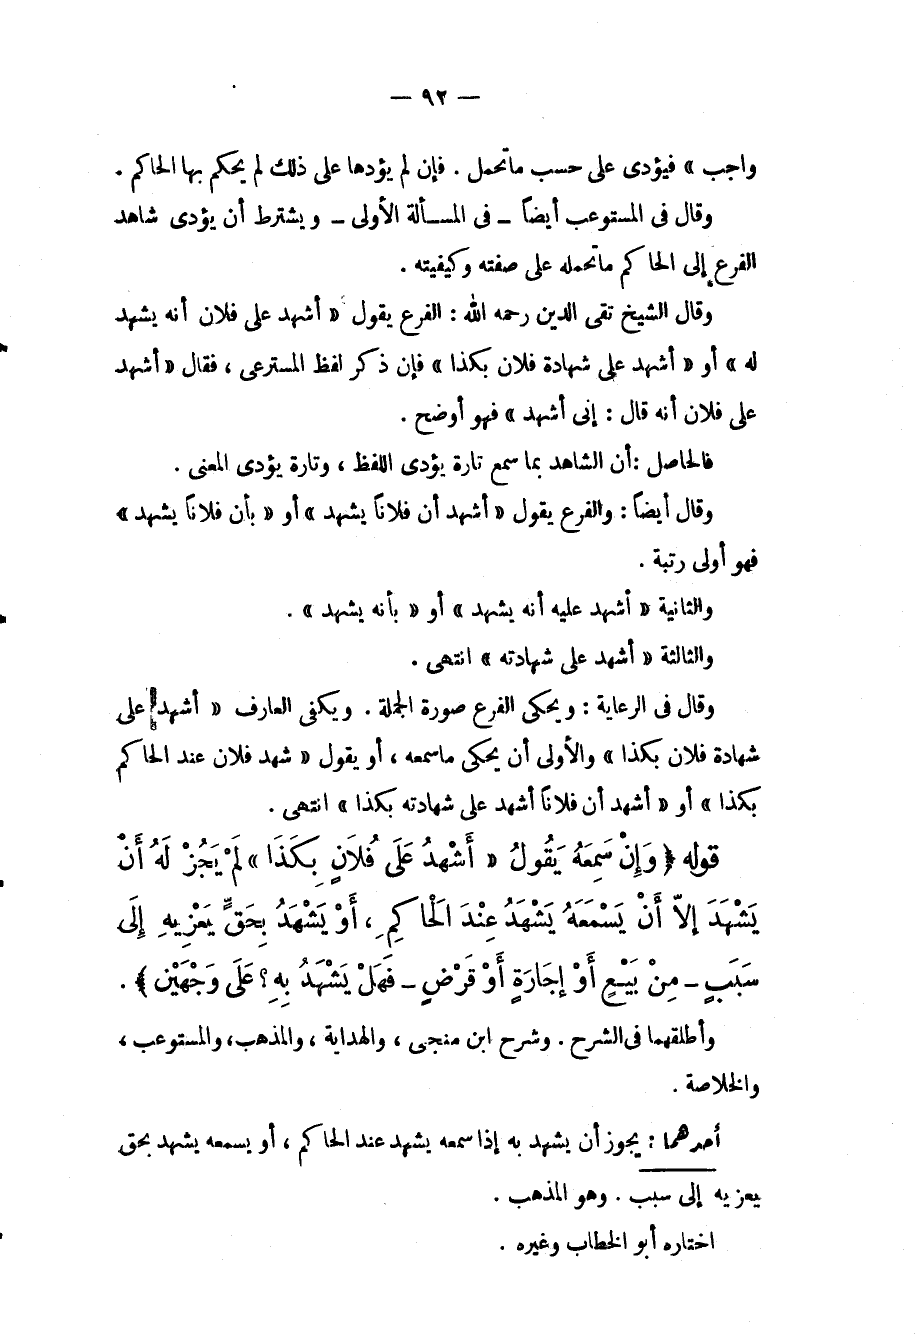 — ٩٢ —
واجب » فيؤدى على حسب ماتحمل . فإن لم يؤدها على ذلك لم يحكم بها الحاكم .
وقال فى المستوعب أيضاً – فى المسألة الأولى – ويشترط أن يؤدى شاهد
الفرع إلى الحاكم ماتحمله على صفته وكيفيته .
وقال الشيخ تقى الدين رحمه الله : الفرع يقول « أشهد على فلان أنه يشهد
له » أو « أشهد على شهادة فلان بكذا » فإن ذكر لفظ المسترعى ، فقال « أشهد
على فلان أنه قال : إنى أشهد » فهو أوضح .
فالحاصل : أن الشاهد بما سمع تارة يؤدى اللفظ ، وتارة يؤدى المعنى .
وقال أيضاً : والفرع يقول « أشهد أن فلاناً يشهد » أو « بأن فلاناً يشهد »
فهو أولى رتبة .
والثانية « أشهد عليه أنه يشهد » أو « بأنه يشهد » .
والثالثة « أشهد على شهادته » انتهى .
وقال فى الرعاية : ويحكى الفرع صورة الجملة . ويكفى العارف « أشهد على
شهادة فلان بكذا » والأولى أن يحكى ماسمعه ، أو يقول « شهد فلان عند الحاكم
بكذا » أو « أشهد أن فلاناً أشهد على شهادته بكذا » انتهى .
قوله ﴿ وَإِنْ سَمِعَهُ يَقُولُ « أَشْهَدُ عَلَى فُلَانٍ بِكَذَا » لَمْ يَجُزْ لَهُ أَنْ
يَشْهَدَ إِلاّ أَنْ يَسْمَعَهُ يَشْهَدُ عِنْدَ الْحَاكِمِ ، أَوْ يَشْهَدُ بِحَقٍّ يَعْزِيهِ إِلَى
سَبَبٍ – مِنْ بَيْعٍ أَوْ إِجَارَةٍ أَوْ قَرْضٍ – فَهَلْ يَشْهَدُ بِهِ ؟ عَلَى وَجْهَيْنِ ﴾ .
وأطلقهما فى الشرح . وشرح ابن منجى ، والهداية ، والمذهب ، والمستوعب ،
والخلاصة .
أحدهما : يجوز أن يشهد به إذا سمعه يشهد عند الحاكم ، أو يسمعه يشهد بحق
يعزيه إلى سبب . وهو المذهب .
اختاره أبو الخطاب وغيره .